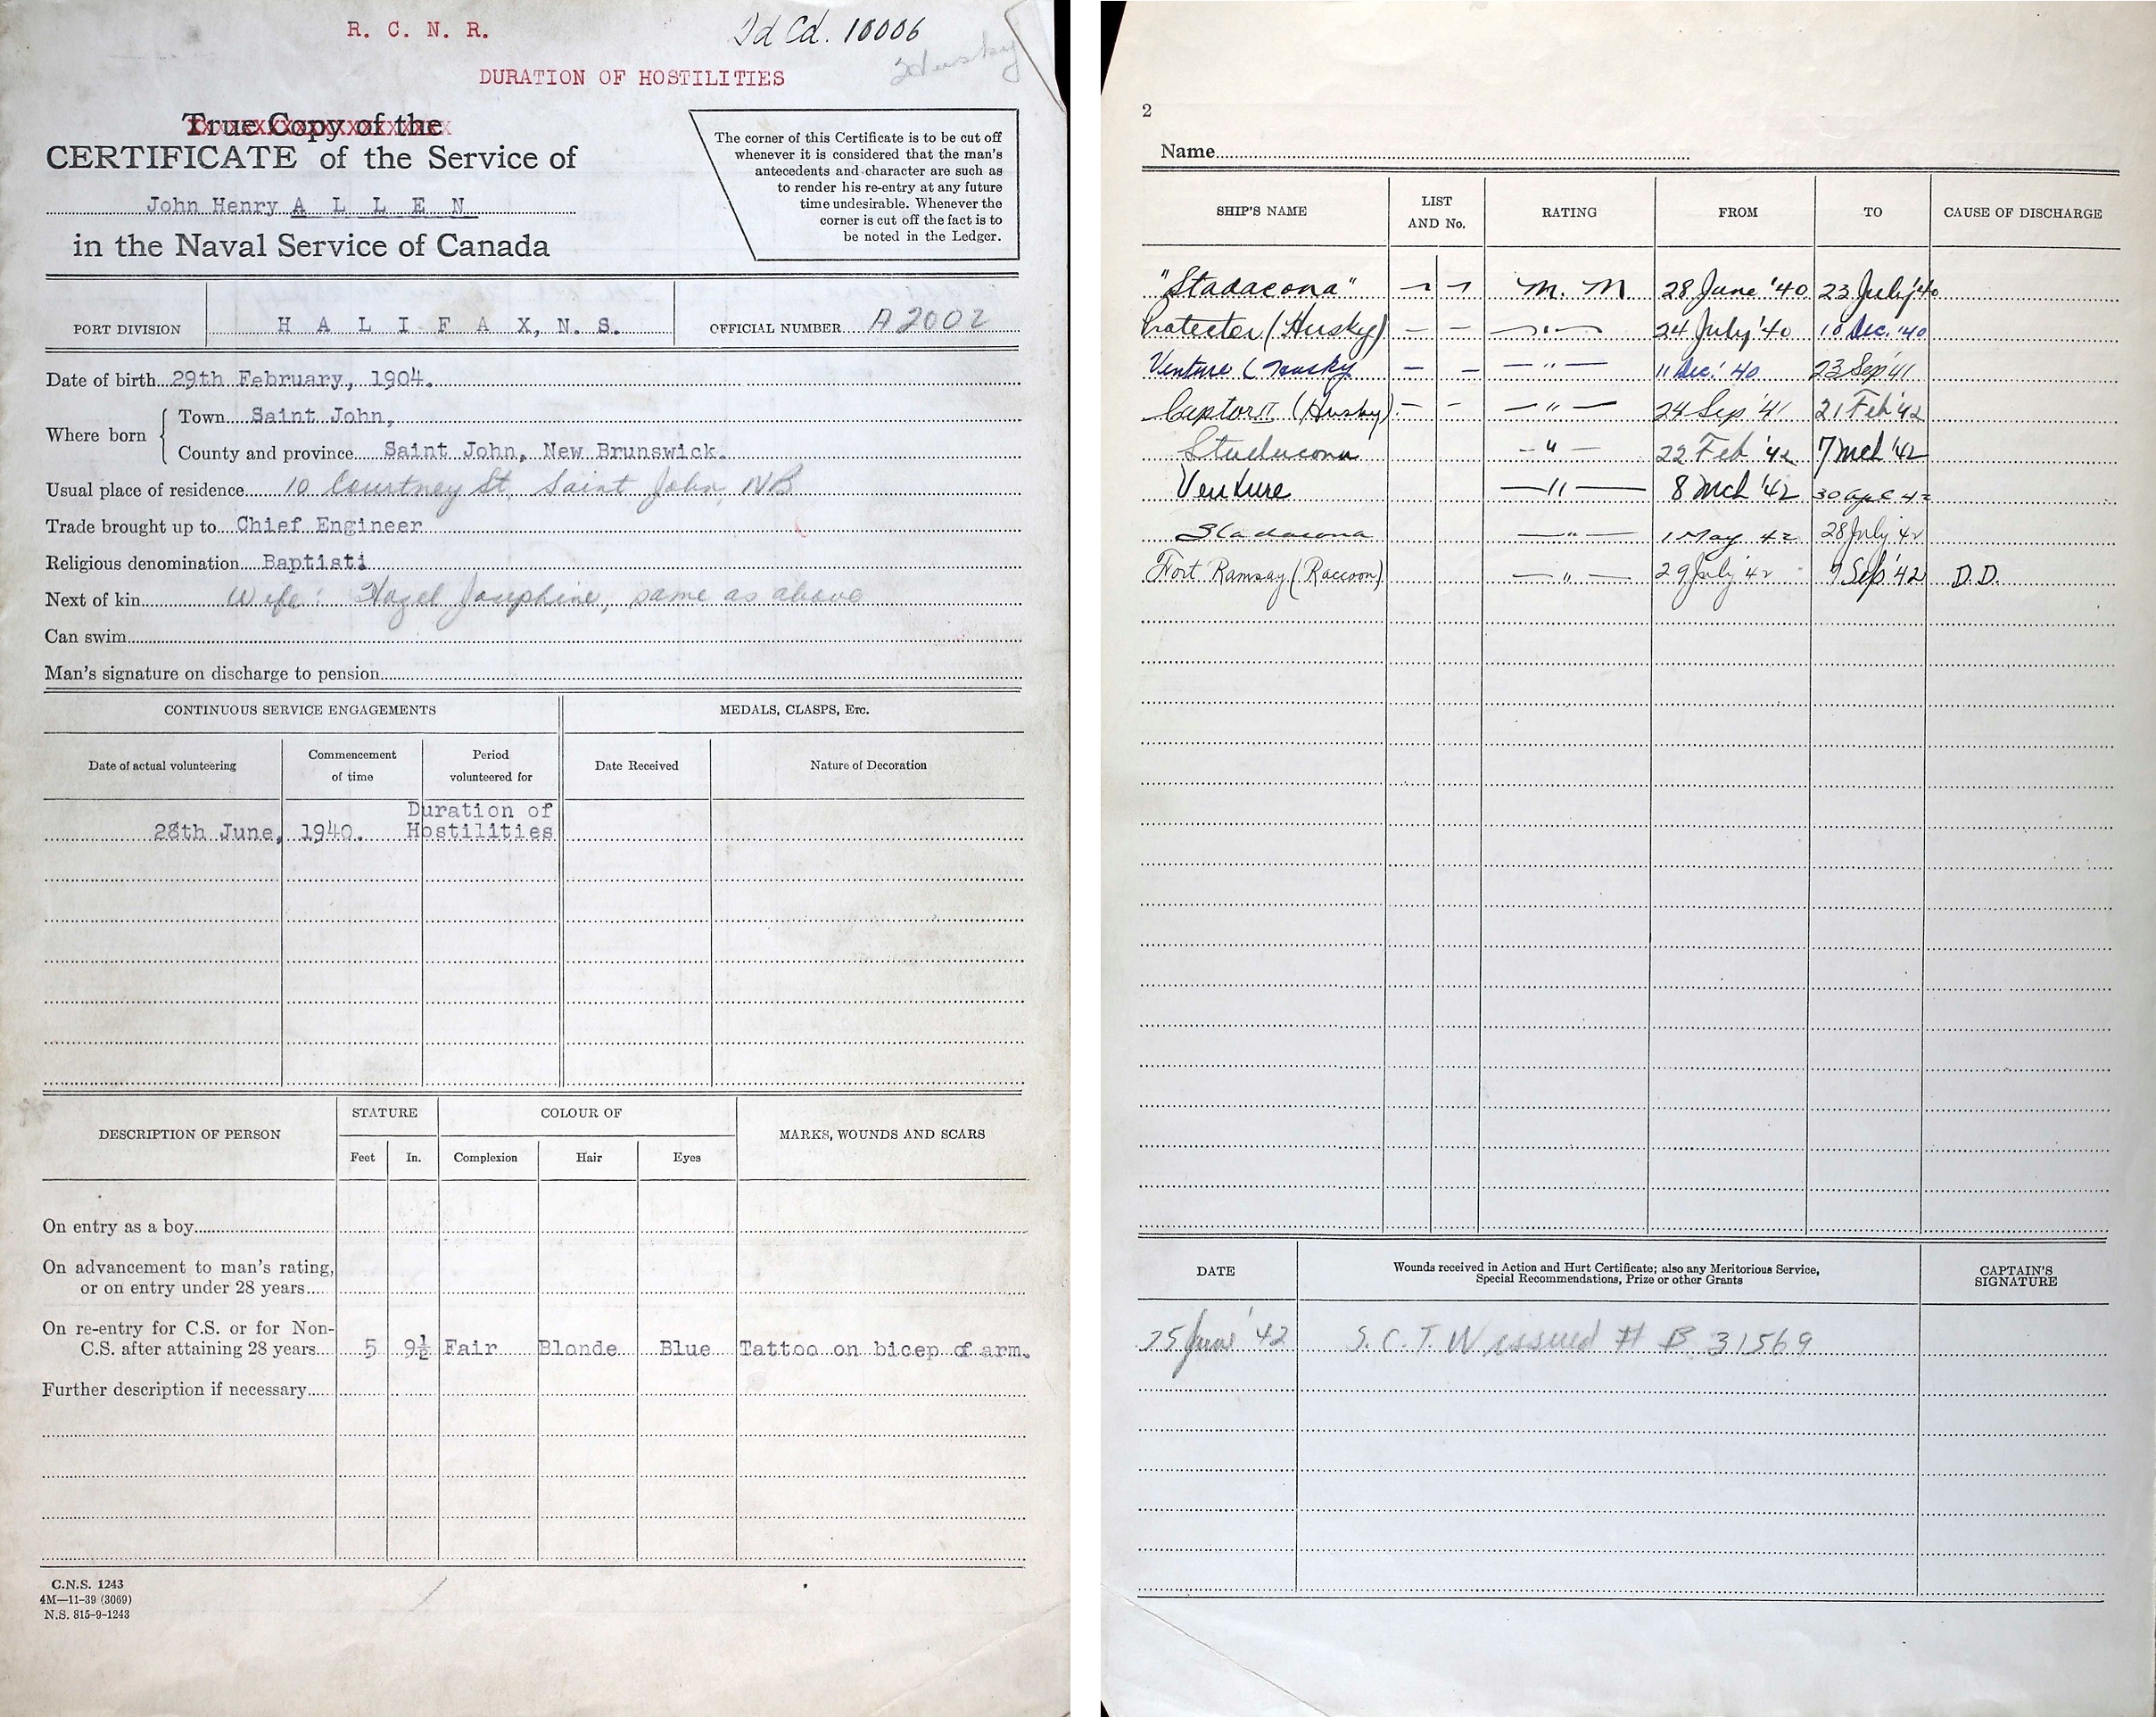 R. C. N. R.
Id Cd. 10006
Husky
DURATION OF HOSTILITIES
True Copy of the
CERTIFICATE of the Service of
John Henry A L L E N
in the Naval Service of Canada
The corner of this Certificate is to be cut off
whenever it is considered that the man's
antecedents and character are such as
to render his re-entry at any future
time undesirable. Whenever the
corner is cut off the fact is to
be noted in the Ledger.
PORT DIVISION H A L I F A X, N. S. OFFICIAL NUMBER A 2002
Date of birth 29th February, 1904.
Where born
Town Saint John,
County and province Saint John, New Brunswick.
Usual place of residence 10 Courtney St, Saint John, NB
Trade brought up to Chief Engineer
Religious denomination Baptist
Next of kin Wife: Hazel Josephine, same as above
Can swim
Man's signature on discharge to pension
CONTINUOUS SERVICE ENGAGEMENTS MEDALS, CLASPS, Etc.
Date of actual volunteering Commencement of time Period volunteered for Date Received Nature of Decoration
28th June, 1940. Duration of
Hostilities
DESCRIPTION OF PERSON STATURE COLOUR OF MARKS, WOUNDS AND SCARS
Feet In. Complexion Hair Eyes
On entry as a boy
On advancement to man's rating,
or on entry under 28 years
On re-entry for C.S. or for Non-
C.S. after attaining 28 years 5 9½ Fair Blonde Blue Tattoo on bicep of arm.
Further description if necessary
C.N.S. 1243
4M—11-39 (3069)
N.S. 815-9-1243
2
Name
SHIP'S NAME LIST AND No. RATING FROM TO CAUSE OF DISCHARGE
"Stadacona" M. M 28 June '40 23 July '40
Protector (Husky) — — — " — 24 July '40 10 Dec. '40
Venture (Husky — — — " — 11 Dec. '40 23 Sep '41
Captor II (Husky) — — — " — 24 Sep '41 21 Feb '42
Stadacona — " — 22 Feb '42 7 Mch '42
Venture — " — 8 Mch '42 30 Apl 42
Stadacona — " — 1 May 42 28 July 42
Fort Ramsay (Raccoon) — " — 29 July '42 7 Sep '42 D.D.
DATE Wounds received in Action and Hurt Certificate; also any Meritorious Service,
Special Recommendations, Prize or other Grants CAPTAIN'S
SIGNATURE
25 June '42 S. C. T. W issued # B 31569